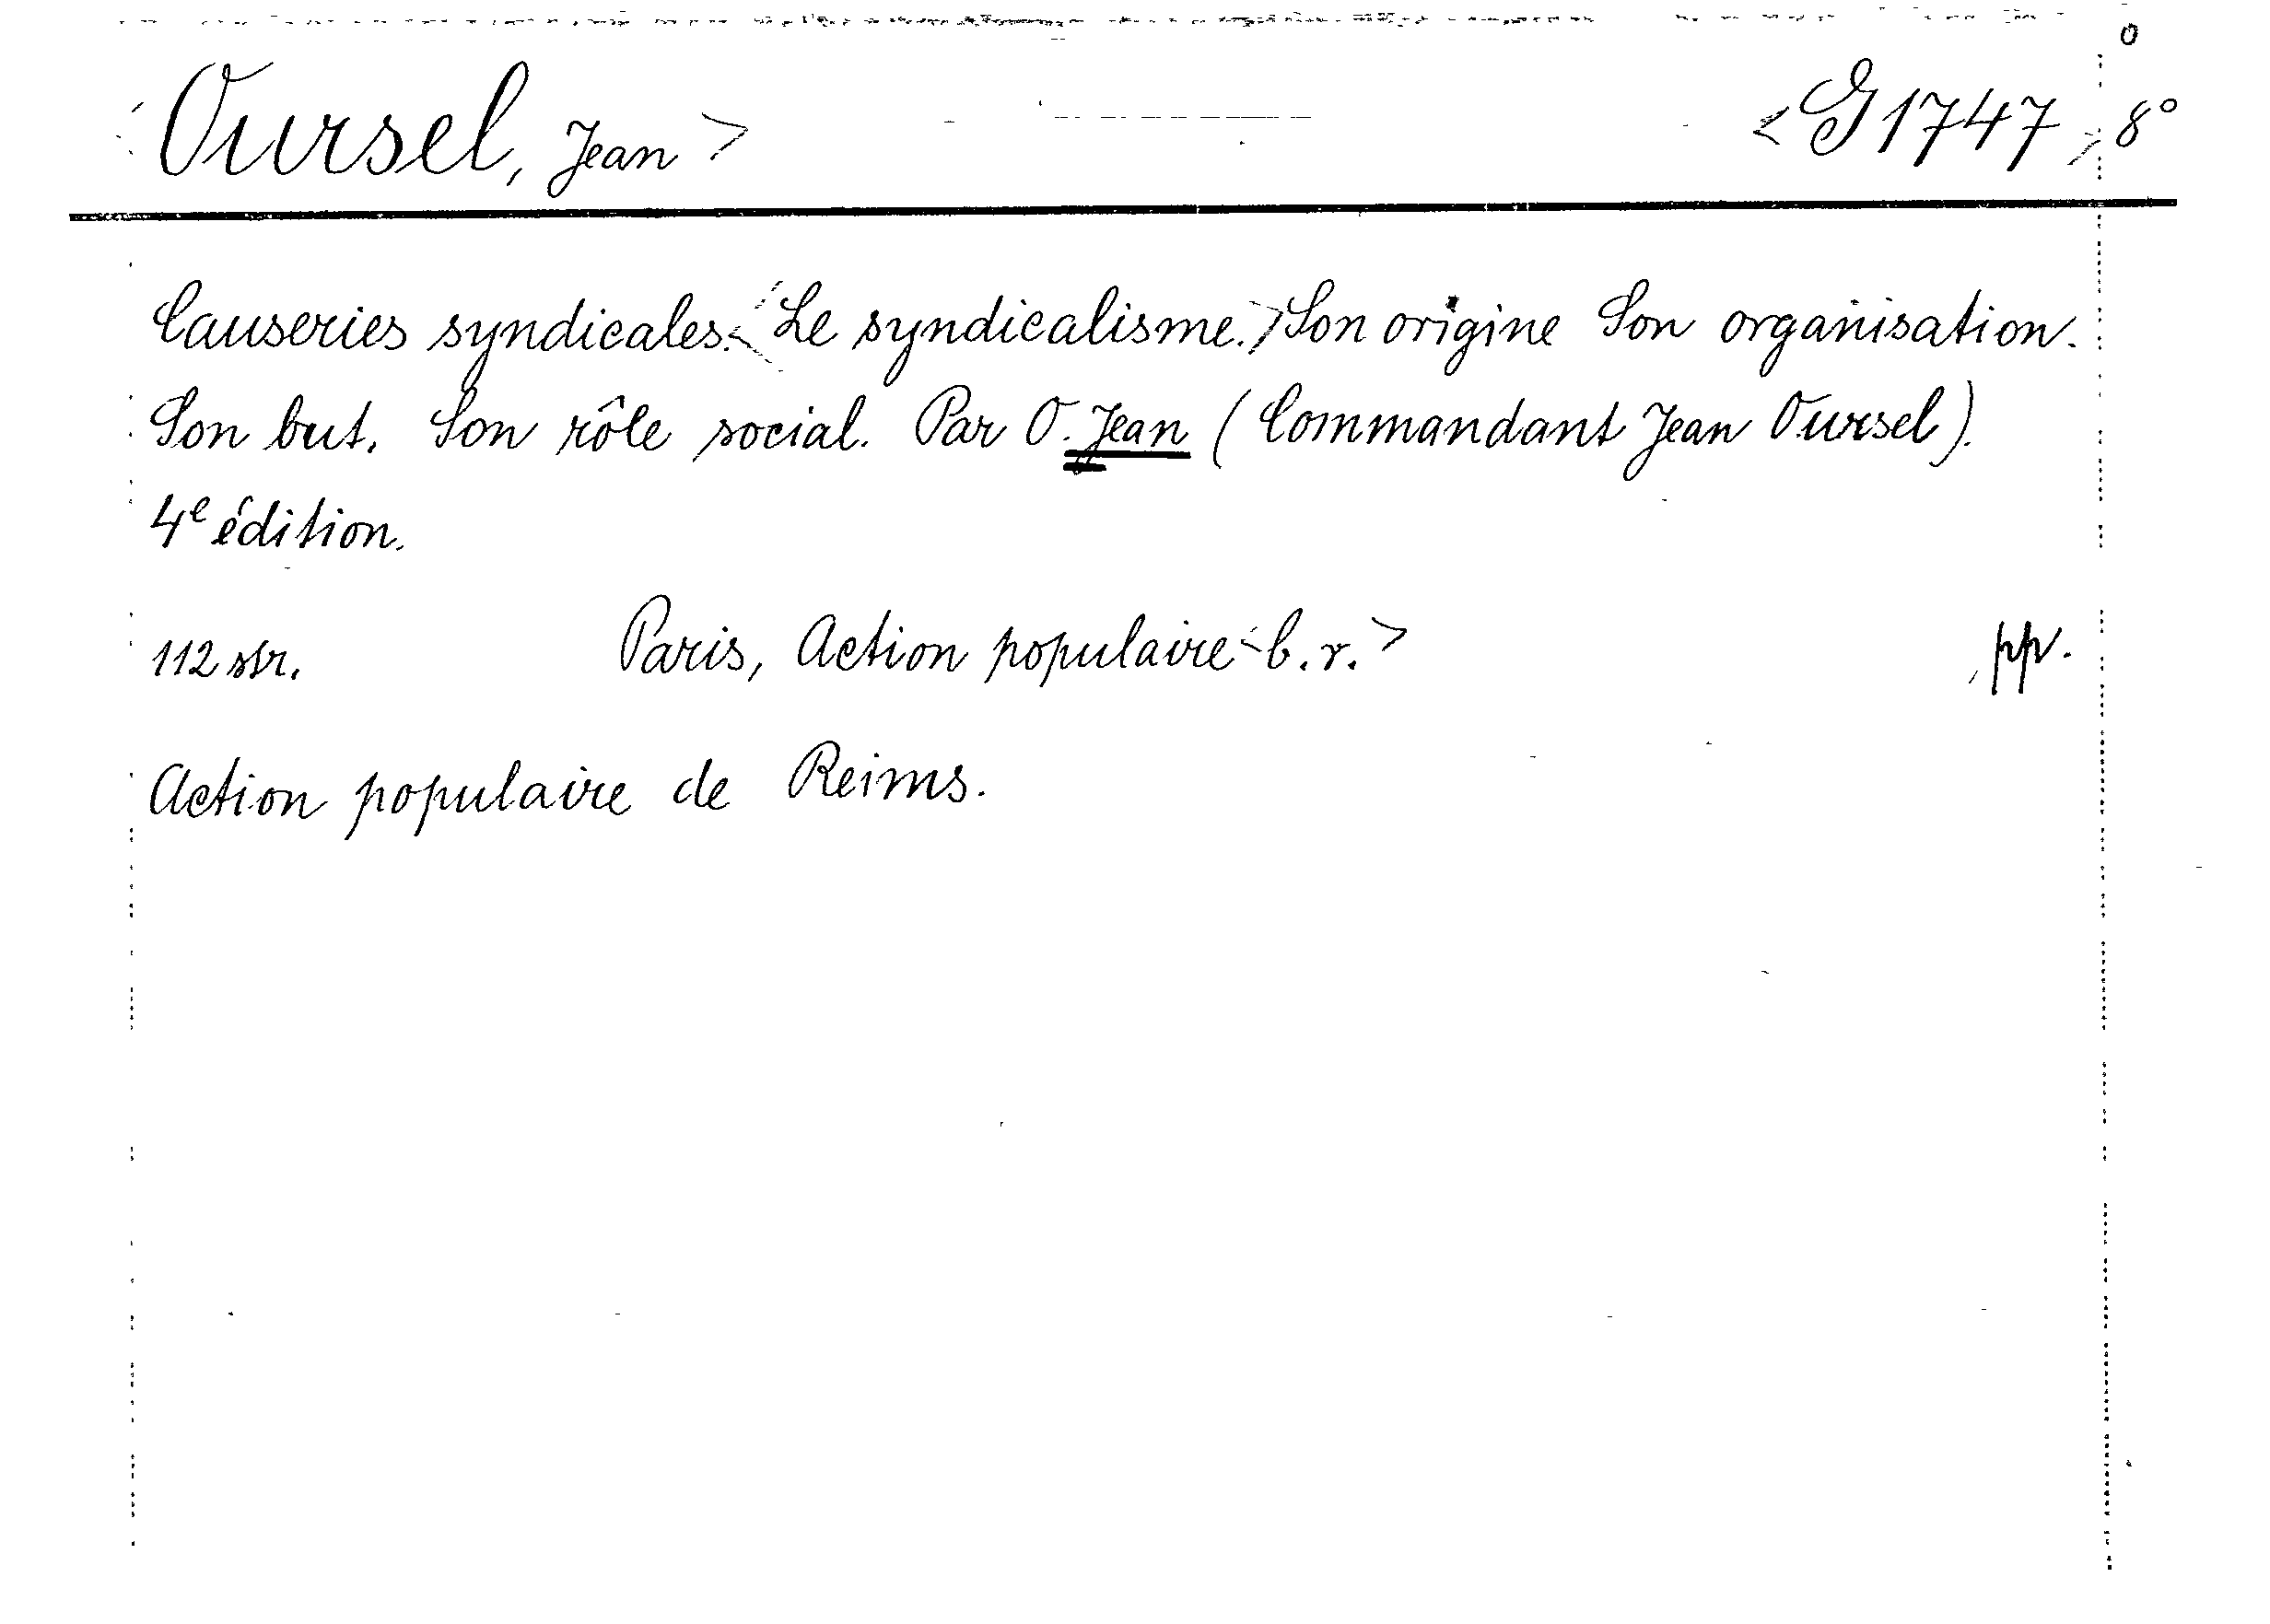 <Oursel, Jean> <G 1747> 8°
Causeries syndicales. <Le syndicalisme.> Son origine Son organisation.
Son but. Son rôle social. Par O. Jean (Commandant Jean Oursel).
4e édition.
112 str. Paris, Action populaire <b.r.> pp.
Action populaire de Reims.